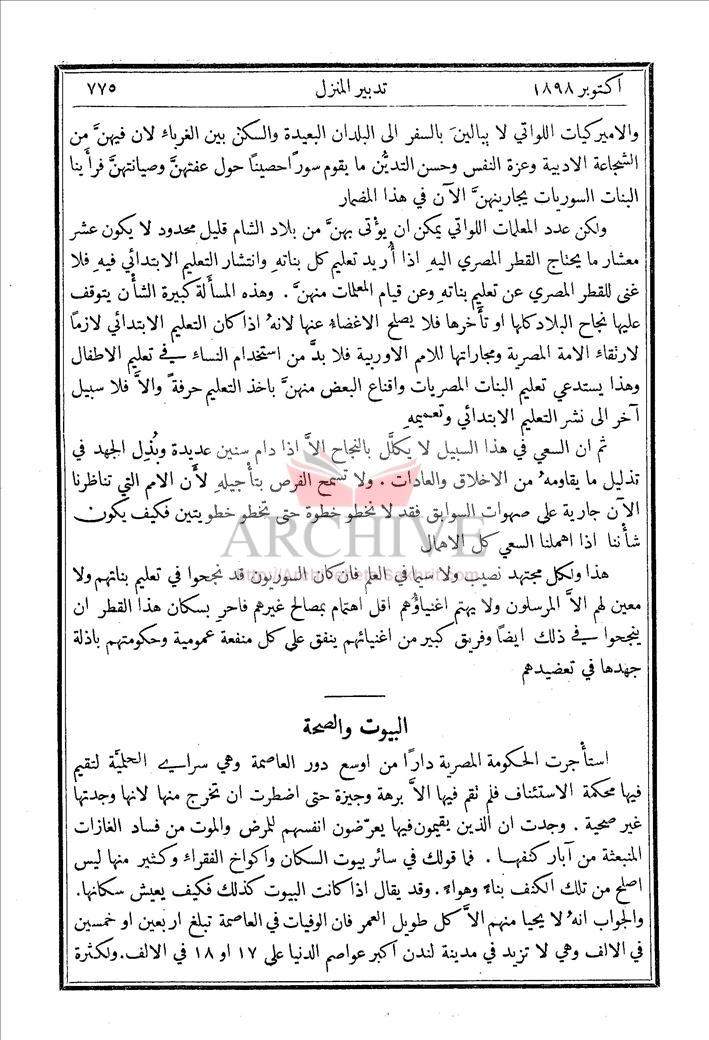 اكتوبر ١٨٩٨ تدبير المنزل ٧٧٥
والاميركيات اللواتي لا يبالينَ بالسفر الى البلدان البعيدة والسكن بين الغرباء لان فيهنَّ من
الشجاعة الادبية وعزة النفس وحسن التديُّن ما يقوم سورًا حصينًا حول عفتهنَّ وصيانتهنَّ فرأينا
البنات السوريات يجارينهنَّ الآن في هذا المضمار
ولكن عدد المعلمات اللواتي يمكن ان يؤتى بهنَّ من بلاد الشام قليل محدود لا يكون عشر
معشار ما يحتاج القطر المصري اليهِ اذا أُريد تعليم كل بناتهِ وانتشار التعليم الابتدائي فيهِ فلا
غنى للقطر المصري عن تعليم بناتهِ وعن قيام المعلمات منهنَّ . وهذه المسأَلة كبيرة الشأن يتوقف
عليها نجاح البلاد كلها او تأَخرها فلا يصلح الاغضاءُ عنها لانهُ اذا كان التعليم الابتدائي لازمًا
لارتقاء الامة المصرية ومجاراتها للامم الاوربية فلا بدَّ من استخدام النساء في تعليم الاطفال
وهذا يستدعي تعليم البنات المصريات واقناع البعض منهنَّ باخذ التعليم حرفةً والاَّ فلا سبيل
آخر الى نشر التعليم الابتدائي وتعميمهِ
ثم ان السعي في هذا السبيل لا يكلَّل بالنجاح الاَّ اذا دام سنين عديدة وبُذِل الجهد في
تذليل ما يقاومهُ من الاخلاق والعادات . ولا تسمح الفرص بتأجيلهِ لأَن الامم التي تناظرنا
الآن جارية على صهوات السوابق فقد لا نخطو خطوة حتى تخطو خطويتين فكيف يكون
شأننا اذا اهملنا السعي كل الاهمال
ARCHIVE
هذا ولكل مجتهد نصيب ولا سيما في العلم فان كان السوريون قد نجحوا في تعليم بناتهم ولا
معين لهم الاَّ المرسلون ولا يهتم اغنياؤُهم اقل اهتمام بمصالح غيرهم فاحرِ بسكان هذا القطر ان
ينجحوا في ذلك ايضًا وفريق كبير من اغنيائهم ينفق على كل منفعة عمومية وحكومتهم باذلة
جهدها في تعضيدهم
البيوت والصحة
استأجرت الحكومة المصرية دارًا من اوسع دور العاصمة وهي سراي الحلميَّة لتقيم
فيها محكمة الاستئناف فلم نقم فيها الاَّ برهة وجيزة حتى اضطرت ان تخرج منها لانها وجدتها
غير صحية . وجدت ان الذين يقيمون فيها يعرّضون انفسهم للمرض والموت من فساد الغازات
المنبعثة من آبار كنفها . فما قولك في سائر بيوت السكان واكواخ الفقراء وكثير منها ليس
اصلح من تلك الكنف بناءً وهواءً . وقد يقال اذا كانت البيوت كذلك فكيف يعيش سكانها.
والجواب انهُ لا يحيا منهم الاَّ كل طويل العمر فان الوفيات في العاصمة تبلغ اربعين او خمسين
في الالف وهي لا تزيد في مدينة لندن اكبر عواصم الدنيا على ١٧ او ١٨ في الالف. ولكثرة